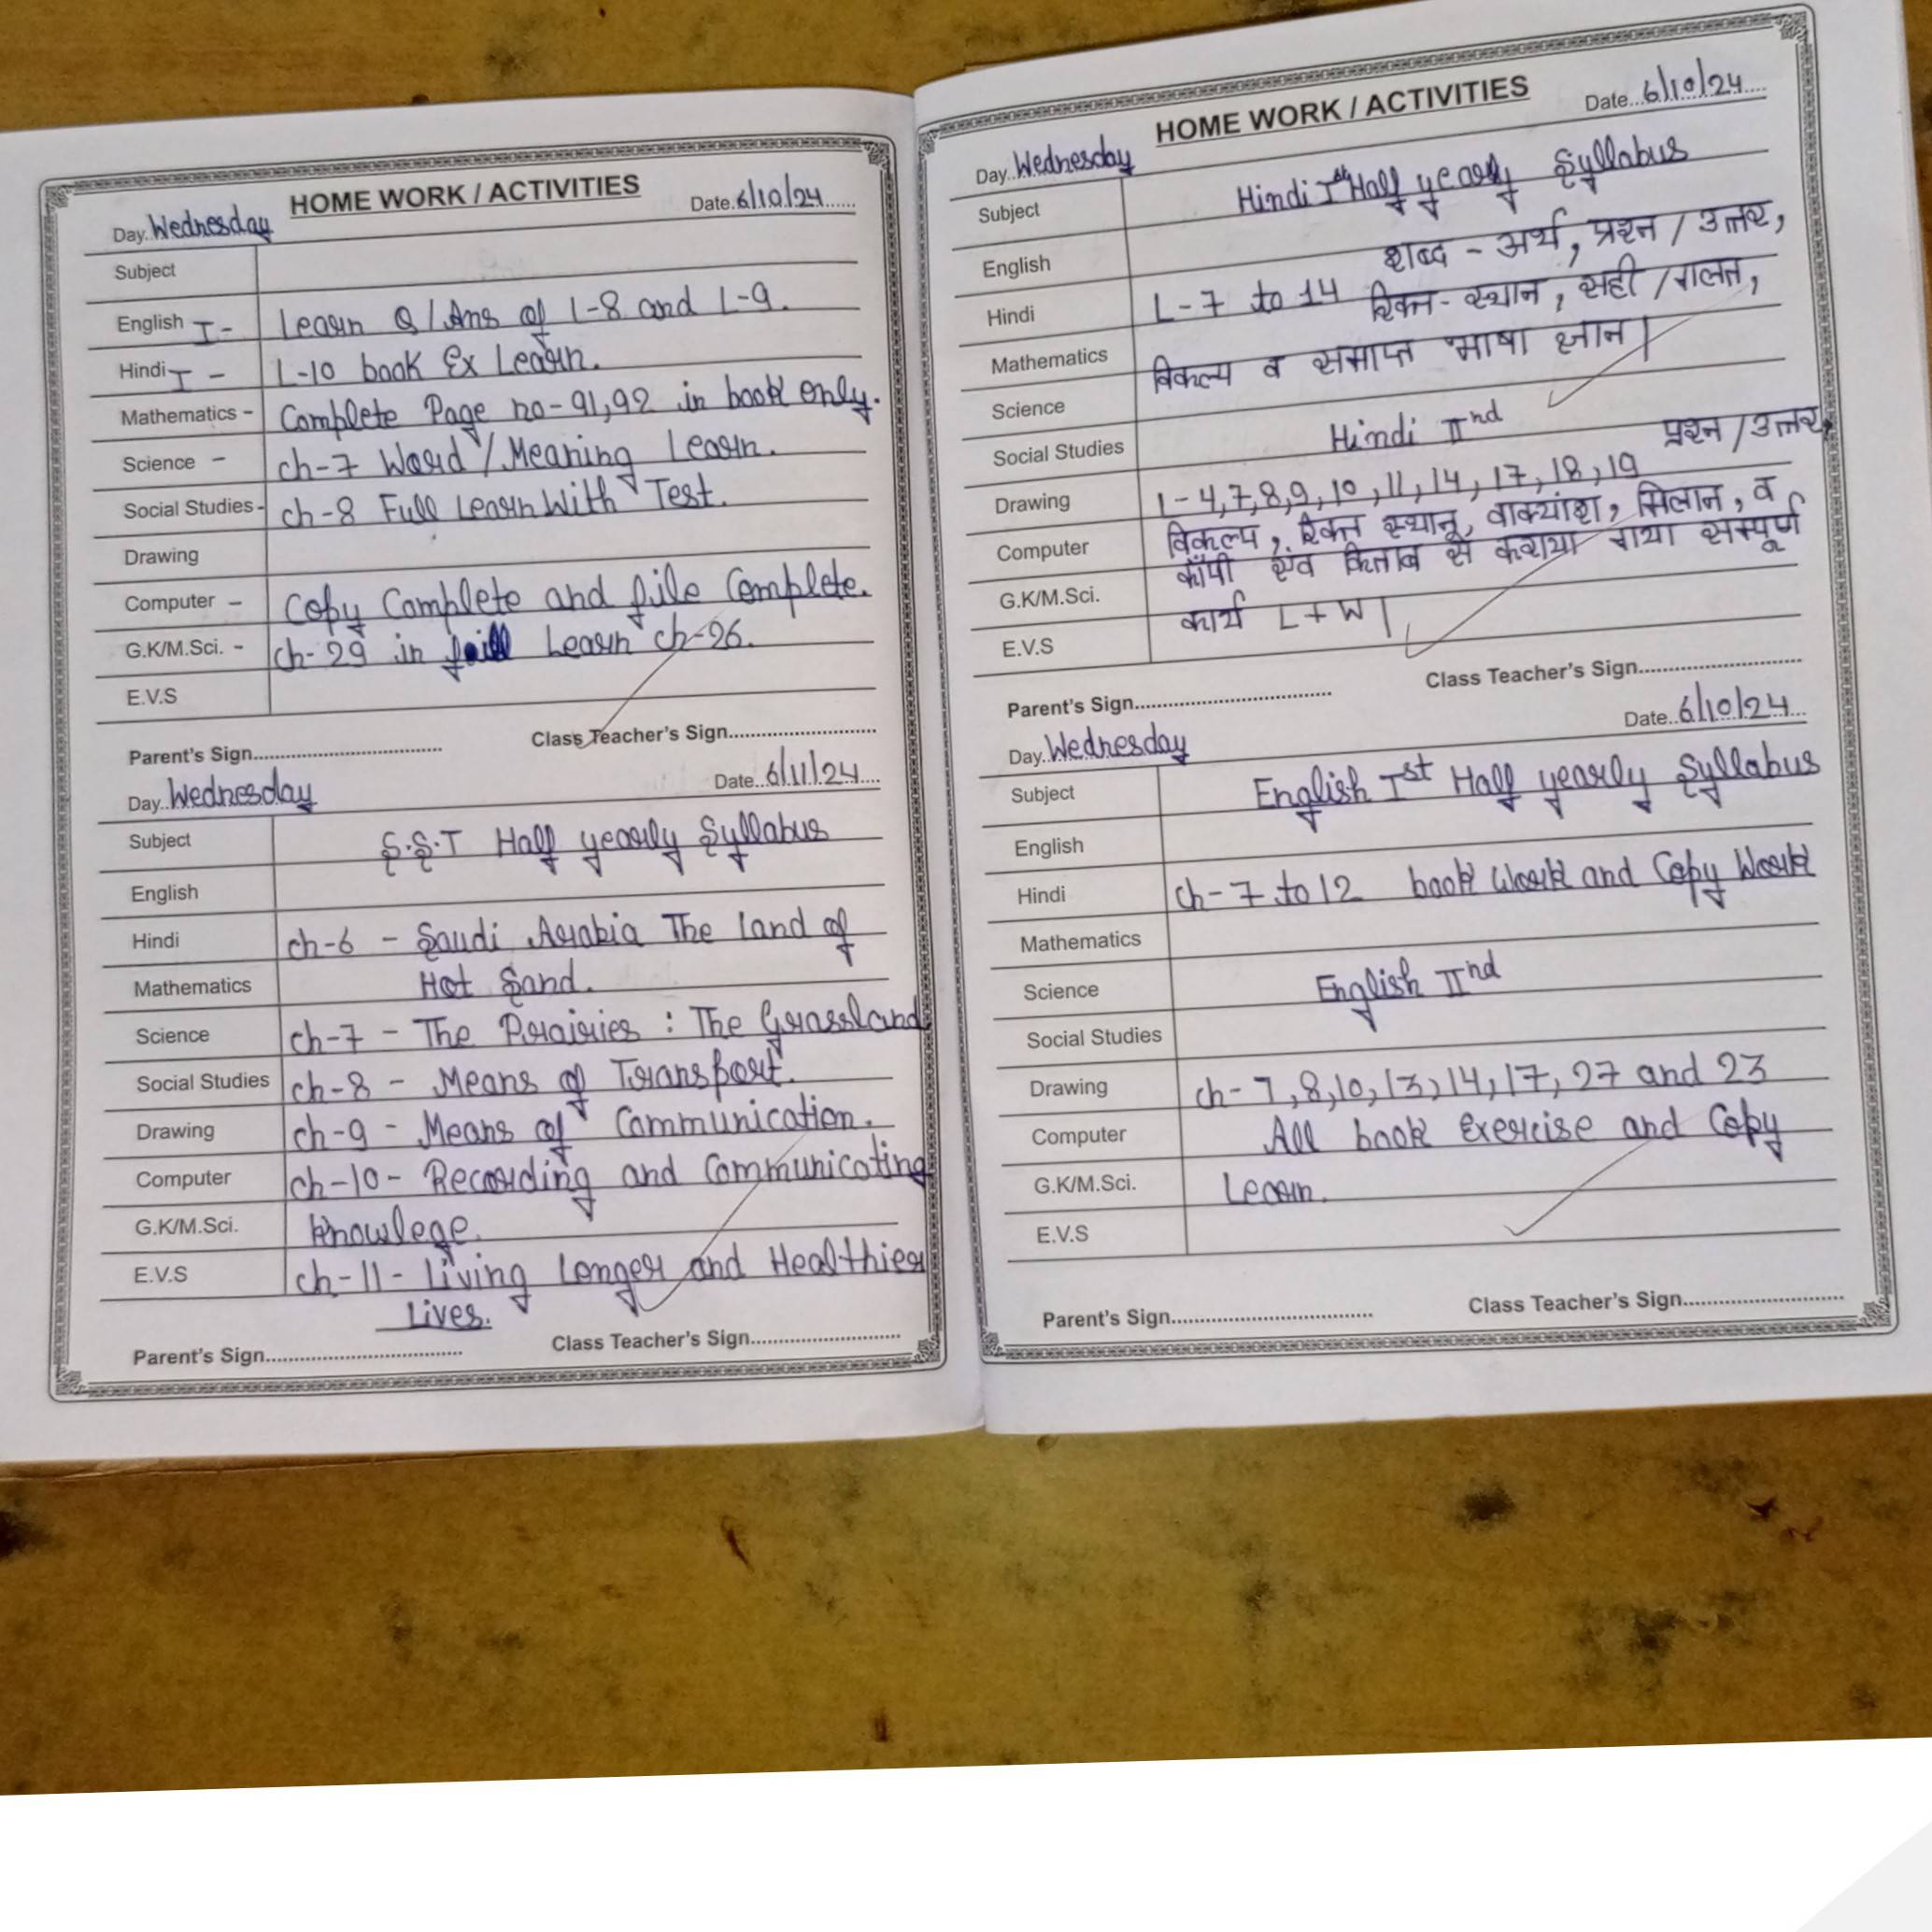 HOME WORK / ACTIVITIES
Day..Wednesday Date.6/10/24......
Subject
English I - Learn Q/Ans of L-8 and L-9.
Hindi I - L-10 book Ex Learn.
Mathematics - Complete Page no-91,92 in book only.
Science - ch-7 Word/Meaning Learn.
Social Studies - ch-8 Full Learn With Test.
Drawing
Computer - Copy Complete and file Complete.
G.K/M.Sci. - ch-29 in Learn ch-26.
E.V.S
Parent's Sign.................................. Class Teacher's Sign...........................
Day..Wednesday Date..6/11/24....
Subject S.S.T Half yearly Syllabus
English
Hindi ch-6 - Saudi Arabia The land of
Mathematics Hot Sand.
Science ch-7 - The Prairies : The Grassland
Social Studies ch-8 - Means of Transport.
Drawing ch-9 - Means of Communication.
Computer ch-10- Recording and Communicating
G.K/M.Sci. knowlege.
E.V.S ch-11- Living Longer and Healthier
Lives.
Parent's Sign.................................... Class Teacher's Sign...........................
HOME WORK / ACTIVITIES
Day..Wednesday Date...6/10/24....
Subject Hindi Ist Half yearly Syllabus
English शब्द - अर्थ, प्रश्न / उत्तर,
Hindi L-7 to 14 रिक्त-स्थान, सही /गलत,
Mathematics विकल्प व समाप्त भाषा ज्ञान|
Science
Social Studies Hindi IInd प्रश्न /उत्तर,
Drawing L-4,7,8,9,10,11,14,17,18,19
Computer विकल्प, रिक्त स्थान, वाक्यांश, मिलान, व
कॉपी एंव किताब से कराया गया सम्पूर्ण
G.K/M.Sci. कार्य L+W|
E.V.S
Parent's Sign.................................... Class Teacher's Sign..............................
Day..Wednesday Date..6/10/24...
Subject English Ist Half yearly Syllabus
English
Hindi ch-7 to 12 book work and Copy Work
Mathematics
Science English IInd
Social Studies
Drawing ch-7,8,10,13,14,17,27 and 23
Computer All book Exercise and Copy
G.K/M.Sci. Learn.
E.V.S
Parent's Sign..................................... Class Teacher's Sign.............................